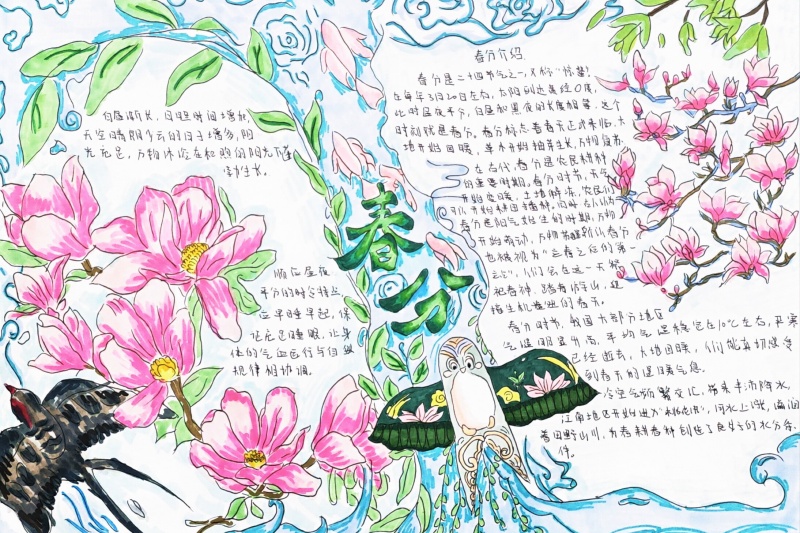 春分介绍
春分是二十四节气之一,又称"惊蛰",
在每年3月20日左右,太阳到达黄经0度,
此时昼夜平分,白昼和黑夜的长度相等。这个
时刻就是春分。春分标志着春天正式来临,大
地开始回暖,草木开始抽芽生长,万物复苏。
在古代,春分是农民耕种
的重要时期。春分时节,天气
开始变暖,土壤解冻,农民们
可以开始耕田播种。同时古人认为
春分是阳气始生的时期,万物
开始萌动,万物苏醒所以春分
也被视为"立春之后的第
一立",人们会在这一天祭
祀春神,踏青游山,迎
接生机盎然的春天。
春分时节,我国大部分地区
气温明显升高,平均气温稳定在10℃左右,严寒
已经逝去,大地回暖,人们能真切感受
到春天的温暖气息。
冷空气频繁交汇,带来丰沛降水,
江南地区开始进入"桃花汛",河水上涨,滋润
着田野山川,为春耕春种创造了良好的水分条
件。
白昼渐长,日照时间增加,
天空晴朗少云的日子增多,阳
光充足,万物沐浴在和煦的阳光下蓬
勃生长。
春分
顺应昼夜
平分的时令特点
应早睡早起,保
证充足睡眠,让身
体的气血运行与自然
规律相协调。